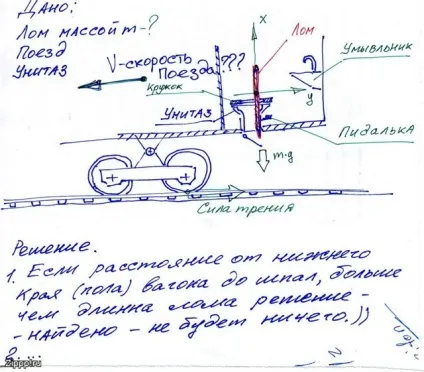 Дано:
Лом массой m-?
Поезд
Унитаз
V-скорость
Поезда???
x
Лом
Умывльник
Кружок
y
Унитаз
Пидалька
m·g
Сила трения
Решение.
1. Если расстояние от нижнего
края (пола) вагона до шпал, больше
чем длинна лома решение -
- найдено - не будет ничего.))
2
Zippp.ru